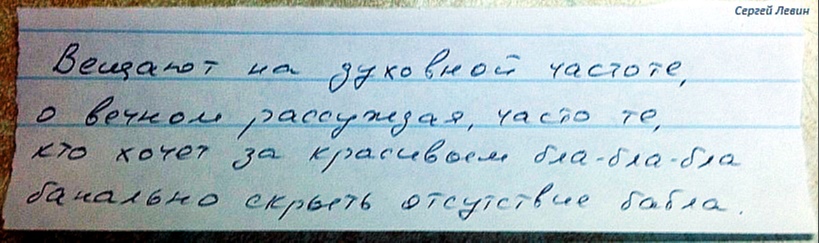 Сергей Левин
Вещают на духовной частоте,
о вечном рассуждая, часто те,
кто хочет за красивым бла-бла-бла
банально скрыть отсутствие бабла.